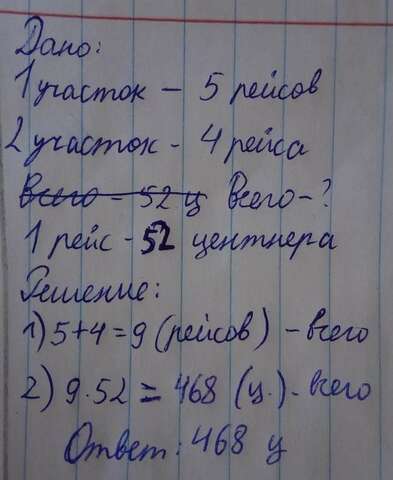 Дано:
1 участок - 5 рейсов
2 участок - 4 рейса
Всего - 52 ц Всего - ?
1 рейс - 52 центнера
Решение:
1) 5+4=9 (рейсов) - всего
2) 9·52=468 (ц.) - всего
Ответ: 468 ц